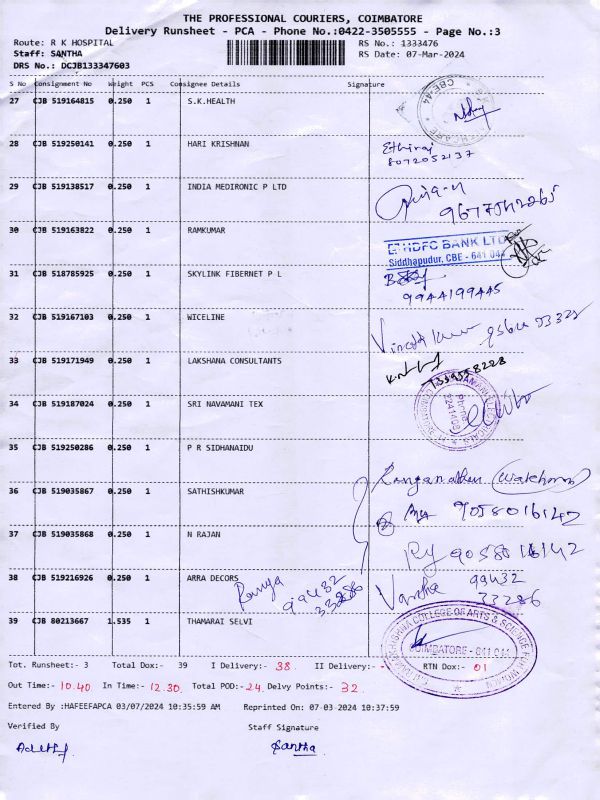 THE PROFESSIONAL COURIERS, COIMBATORE
Delivery Runsheet - PCA - Phone No.:0422-3505555 - Page No.:3
Route: R K HOSPITAL RS No.: 1333476
Staff: SANTHA RS Date: 07-Mar-2024
DRS No.: DCJB133347603
S No Consignment No Weight PCS Consignee Details Signature
27 CJB 519164815 0.250 1 S.K.HEALTH
CBE-44
28 CJB 519250141 0.250 1 HARI KRISHNAN Ethiraj
8072052137
29 CJB 519138517 0.250 1 INDIA MEDIRONIC P LTD
30 CJB 519163822 0.250 1 RAMKUMAR
HDFC BANK LTD
Siddhapudur, CBE - 641 044
31 CJB 518785925 0.250 1 SKYLINK FIBERNET P L
9944199445
32 CJB 519167103 0.250 1 WICELINE
33 CJB 519171949 0.250 1 LAKSHANA CONSULTANTS
34 CJB 519187024 0.250 1 SRI NAVAMANI TEX
35 CJB 519250286 0.250 1 P R SIDHANAIDU
36 CJB 519035867 0.250 1 SATHISHKUMAR Ranganathan
9058016142
37 CJB 519035868 0.250 1 N RAJAN
38 CJB 519216926 0.250 1 ARRA DECORS Ramya 99432 33286 Varsha 99432
33286
39 CJB 80213667 1.535 1 THAMARAI SELVI
COLLEGE OF ARTS & SCIENCE FOR WOMEN
COIMBATORE - 641 044
Tot. Runsheet:- 3 Total Dox:- 39 I Delivery:- 38 II Delivery:- - RTN Dox:- 01
Out Time:- 10.40 In Time:- 12.30 Total POD:- 24 Delvy Points:- 32
Entered By :HAFEEFAPCA 03/07/2024 10:35:59 AM Reprinted On: 07-03-2024 10:37:59
Verified By Staff Signature
Santha